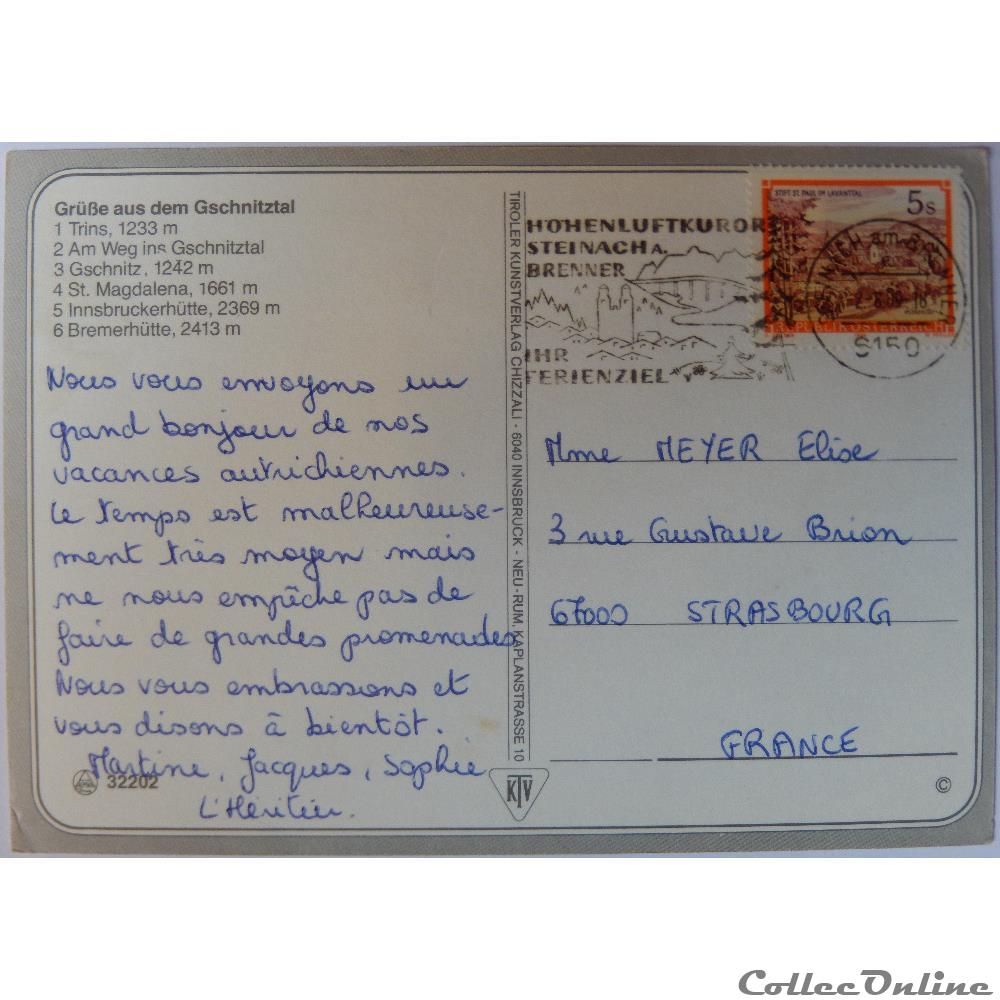 Grüße aus dem Gschnitztal
1 Trins, 1233 m
2 Am Weg ins Gschnitztal
3 Gschnitz, 1242 m
4 St. Magdalena, 1661 m
5 Innsbruckerhütte, 2369 m
6 Bremerhütte, 2413 m
Nous vous envoyons un
grand bonjour de nos
vacances autrichiennes.
Le temps est malheureuse-
ment très moyen mais
ne nous empêche pas de
faire de grandes promenades
Nous vous embrassons et
vous disons à bientôt.
Martine, Jacques, Sophie
L'Héritier.
32202
TIROLER KUNSTVERLAG CHIZZALI - 6040 INNSBRUCK - NEU-RUM, KAPLANSTRASSE 10
KTV
HÖHENLUFTKUROR
STEINACH A.
BRENNER
IHR
FERIENZIEL
STIFT ST. PAUL IM LAVANTTAL
5s
REPUBLIK ÖSTERREICH
6150
Mme MEYER Elise
3 rue Gustave Brion
67000 STRASBOURG
FRANCE
©
CollecOnline